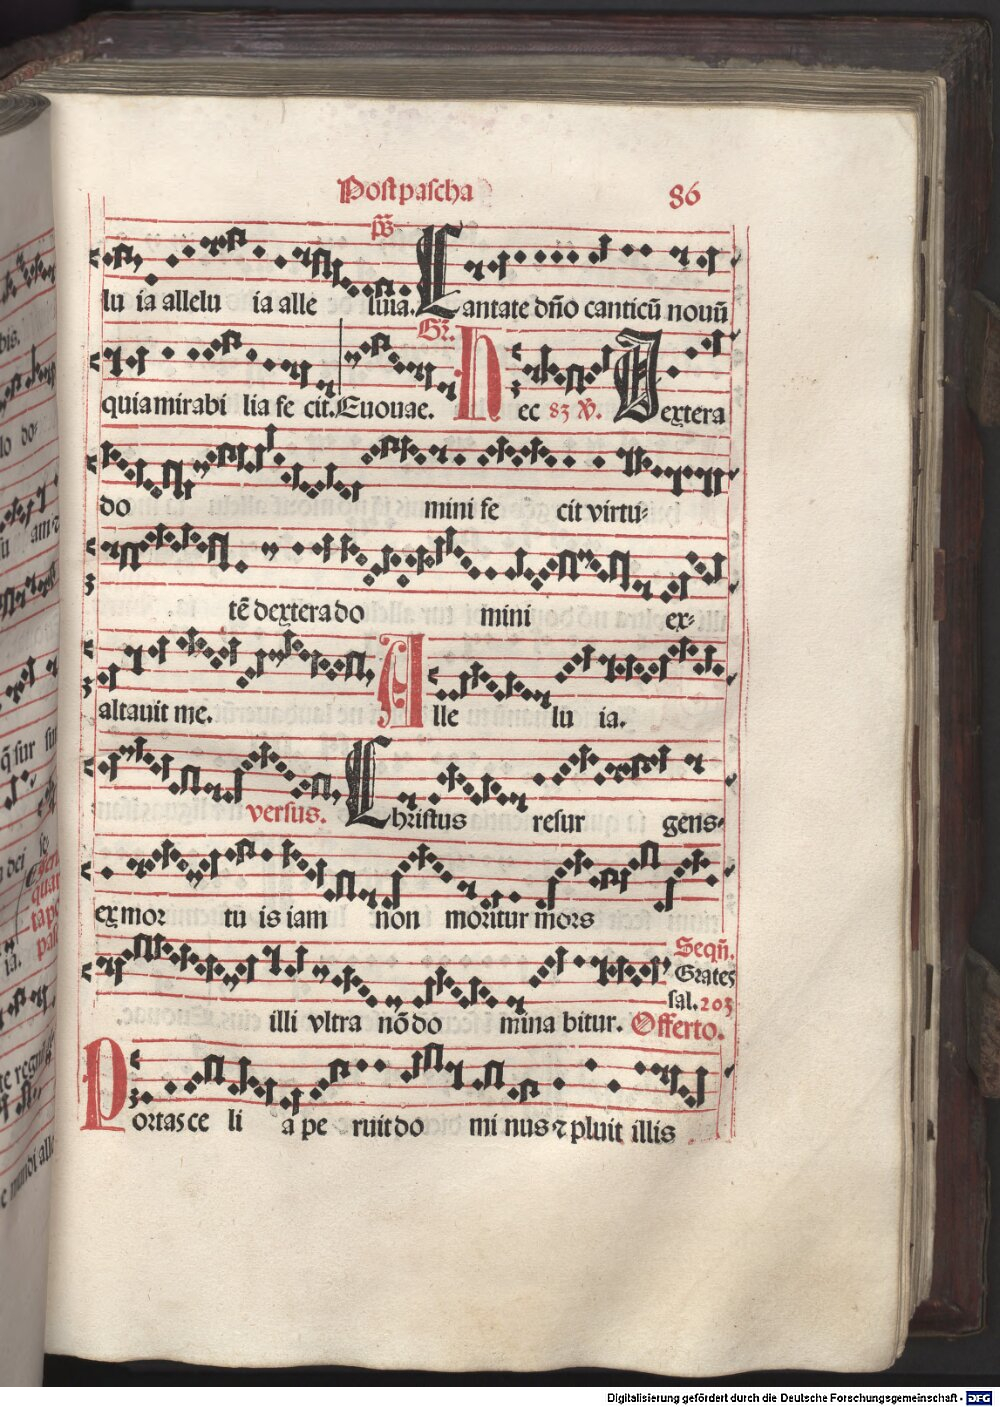 Post pascha 86
ps
lu ia allelu ia alle luia. Cantate dño canticũ nouũ
Gr.
quia mirabi lia fe cit. Euouae. Hec 83 V. Dextera
do mini fe cit virtu-
tẽ dextera do mini ex-
altauit me. Alle lu ia.
versus. Christus resur gens-
ex mor tu is iam non moritur mors
Seqñ.
Grates
sal. 203
illi vltra nõ do mina bitur. Offerto.
Portas ce li a pe ruit do mi nus ⁊ pluit illis
Digitalisierung gefördert durch die Deutsche Forschungsgemeinschaft - DFG